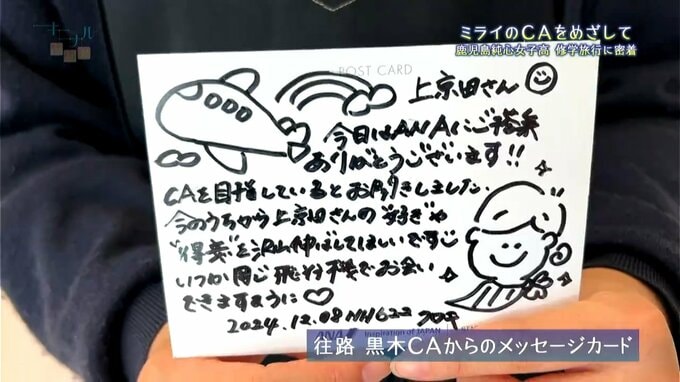 ミライのCAをめざして
鹿児島純心女子高 修学旅行に密着
POST CARD
上京田さん
今日はANAにご搭乗
ありがとうございます!!
CAを目指しているとお聞きしました。
今のうちから上京田さんの"好き"や
"得意"を沢山伸ばしてほしいです
いつか同じ飛行機でお会い
できますように♡
2024.12.08 NH622 クロキ
ANA Inspiration of JAPAN
往路 黒木CAからのメッセージカード